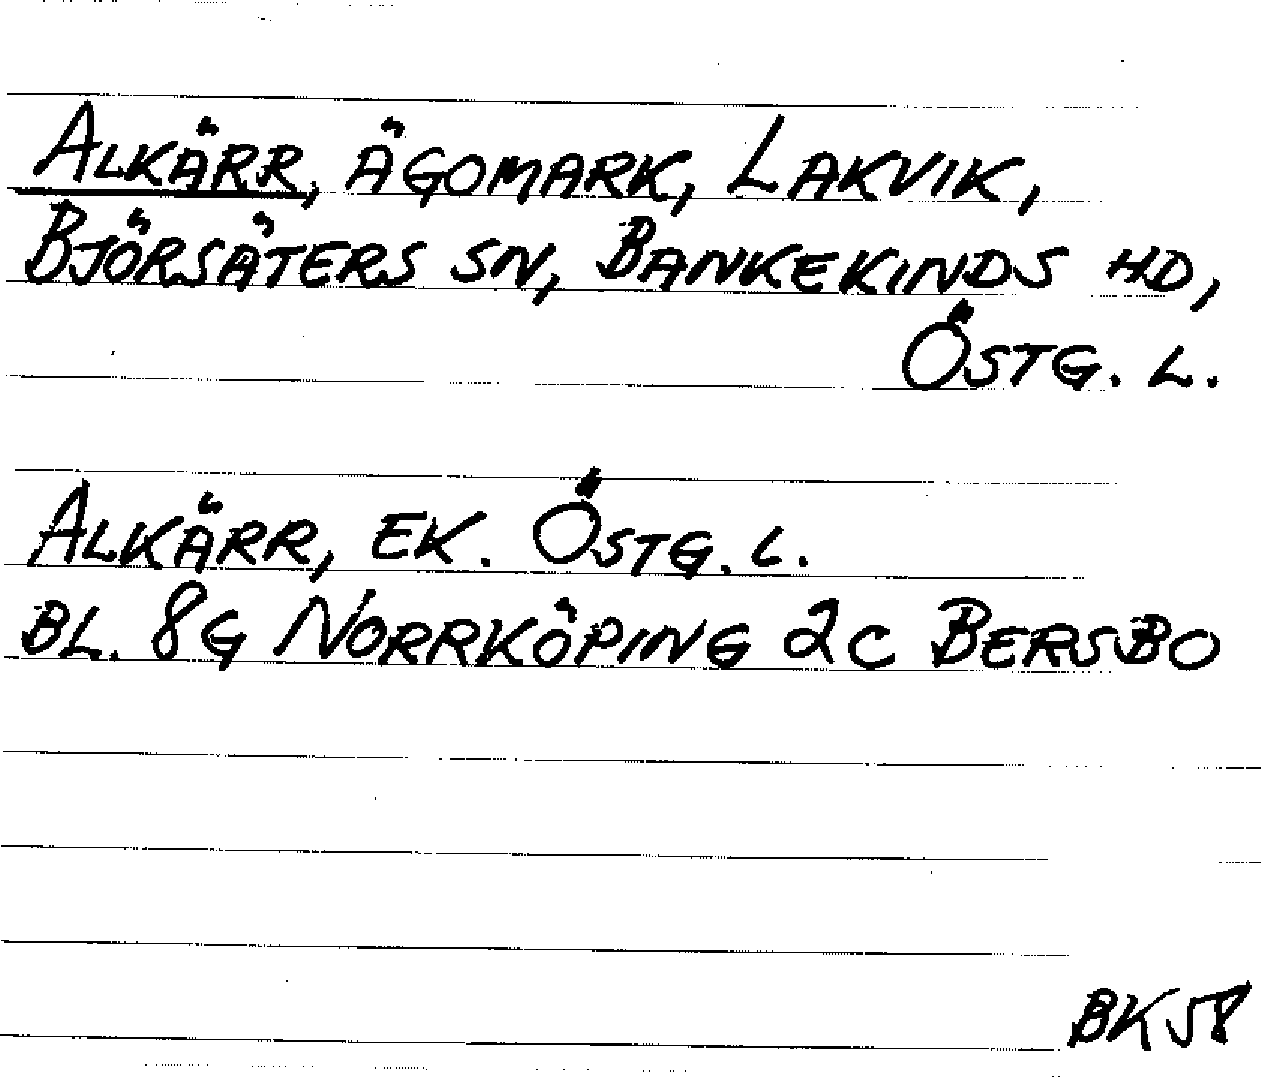 ALKÄRR, ÄGOMARK, LAKVIK,
BJÖRSÄTERS SN, BANKEKINDS HD,
ÖSTG. L.
ALKÄRR, EK. ÖSTG. L.
BL. 8G NORRKÖPING 2C BERSBO
BK58